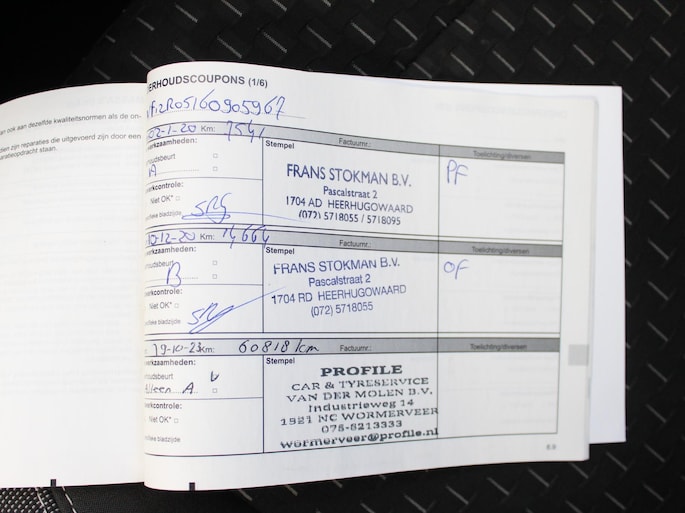 an ook aan dezelfde kwaliteitsnormen als de on-
zien zijn reparaties die uitgevoerd zijn door een
paratieopdracht staan.
ERHOUDSCOUPONS (1/6)
F12R05160905967
02-1-20 Km: 7541 Factuurnr.: Toelichting/diversen
erkzaamheden: Stempel
houdsbeurt
A
FRANS STOKMAN B.V.
Pascalstraat 2
1704 AD HEERHUGOWAARD
(072) 5718055 / 5718095
PF
erkcontrole:
Niet OK*
ifieke bladzijde
10-12-20 Km: 14664 Factuurnr.: Toelichting/diversen
erkzaamheden: Stempel
houdsbeurt
B
FRANS STOKMAN B.V.
Pascalstraat 2
1704 RD HEERHUGOWAARD
(072) 5718055
OF
erkcontrole:
Niet OK*
ifieke bladzijde
19-10-23 Km: 60818 km Factuurnr.: Toelichting/diversen
erkzaamheden: Stempel
oudsbeurt
Alleen A
PROFILE
CAR & TYRESERVICE
VAN DER MOLEN B.V.
Industrieweg 14
1521 NC WORMERVEER
075-6213333
wormerveer@profile.nl
erkcontrole:
Niet OK*
ifieke bladzijde
6.9